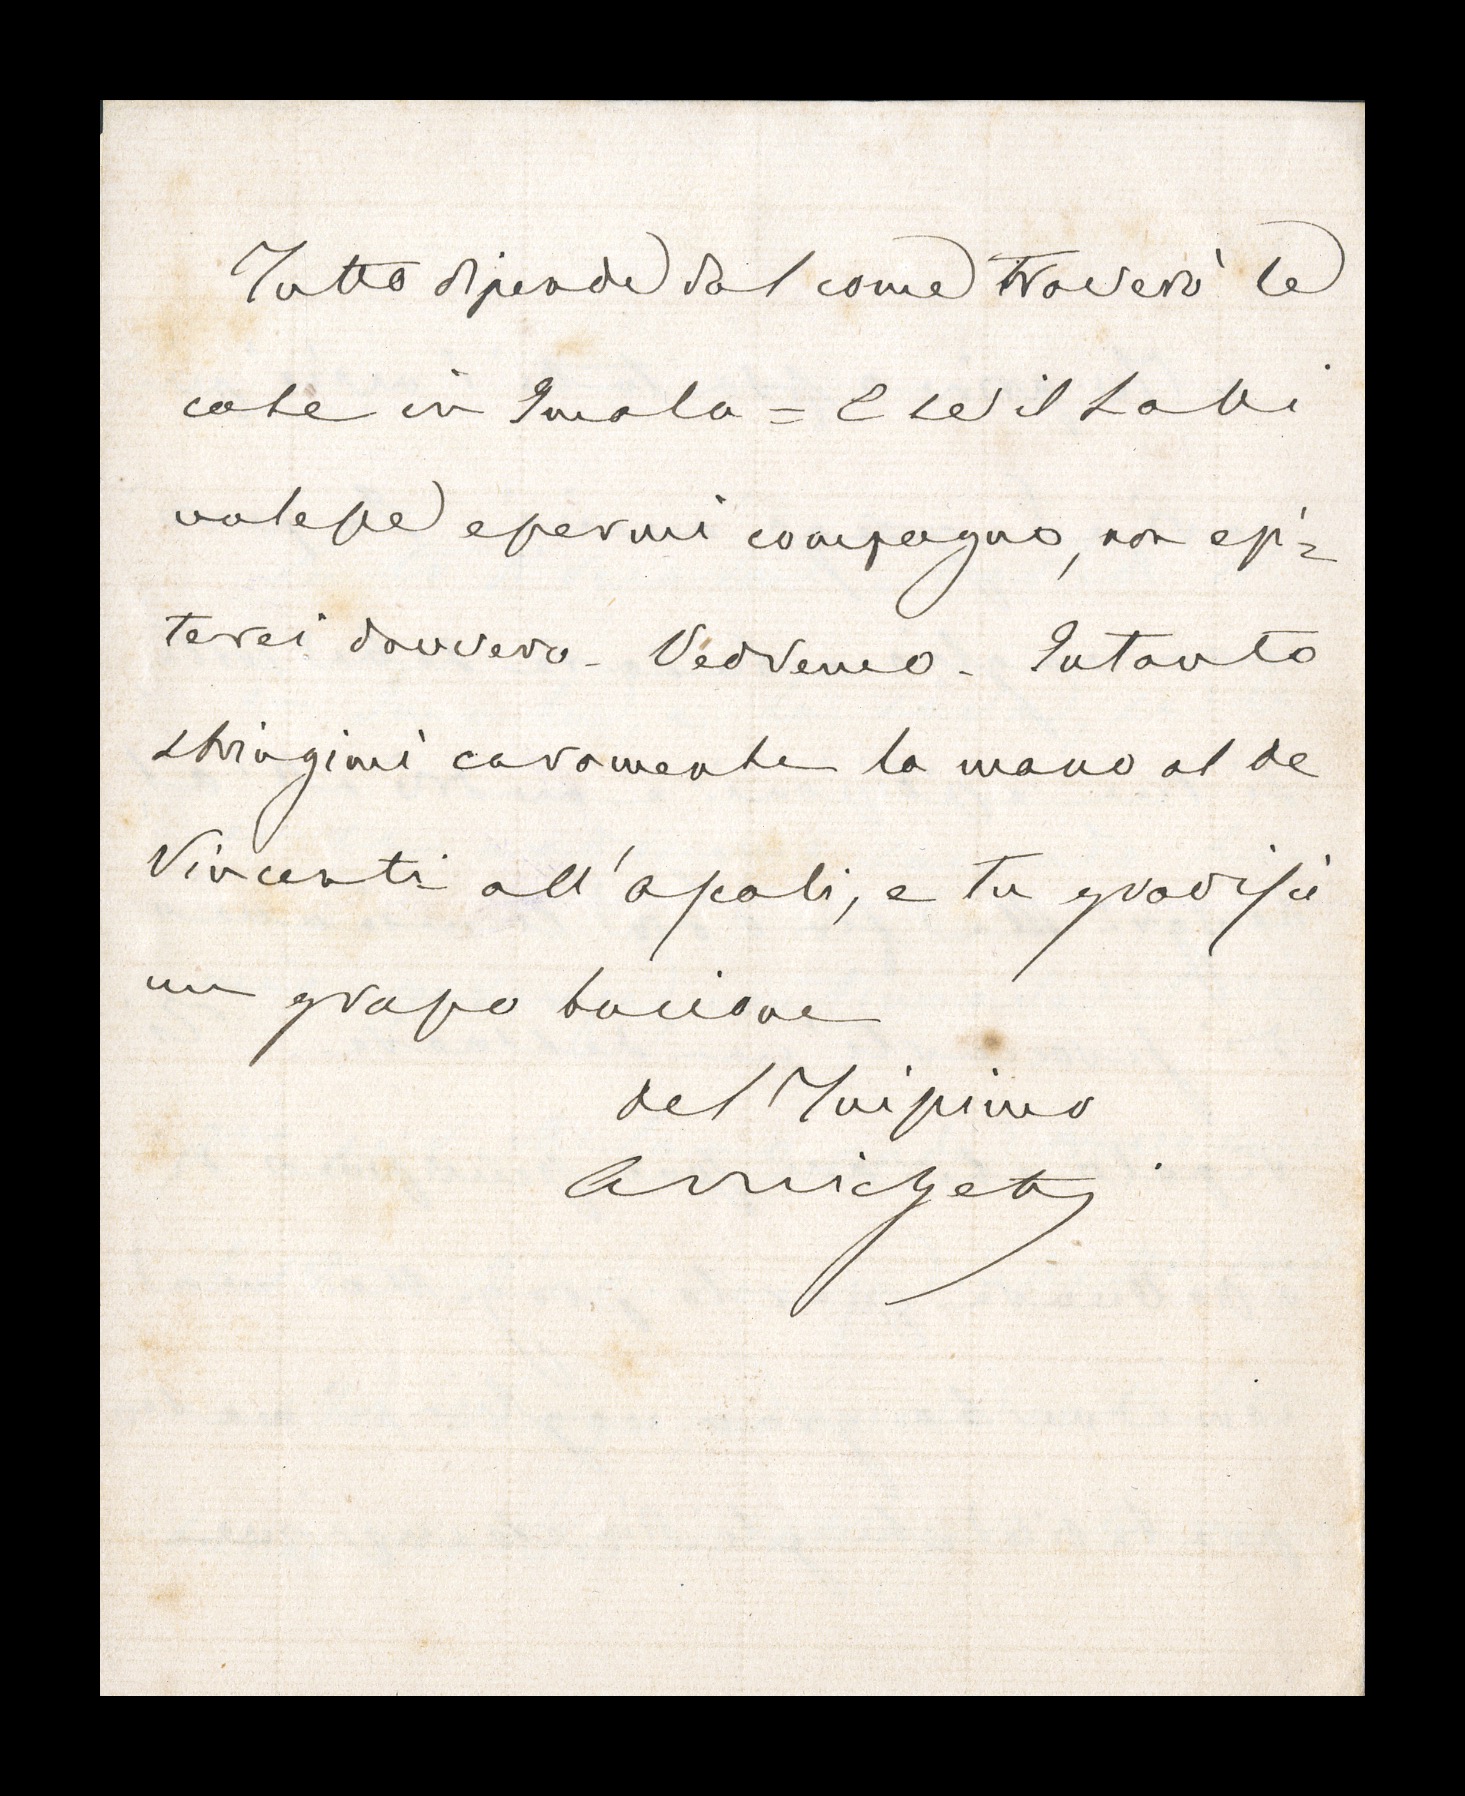 Tutto dipende dal come troverò le
cose in Imola = E se il Satti
volesse essermi compagno, non esi=
terei davvero - Vedremo - Intanto
stringimi caramente la mano al de
Vincenti all'Ascoli, e tu gradisci
un grosso bacione
del Tuissimo